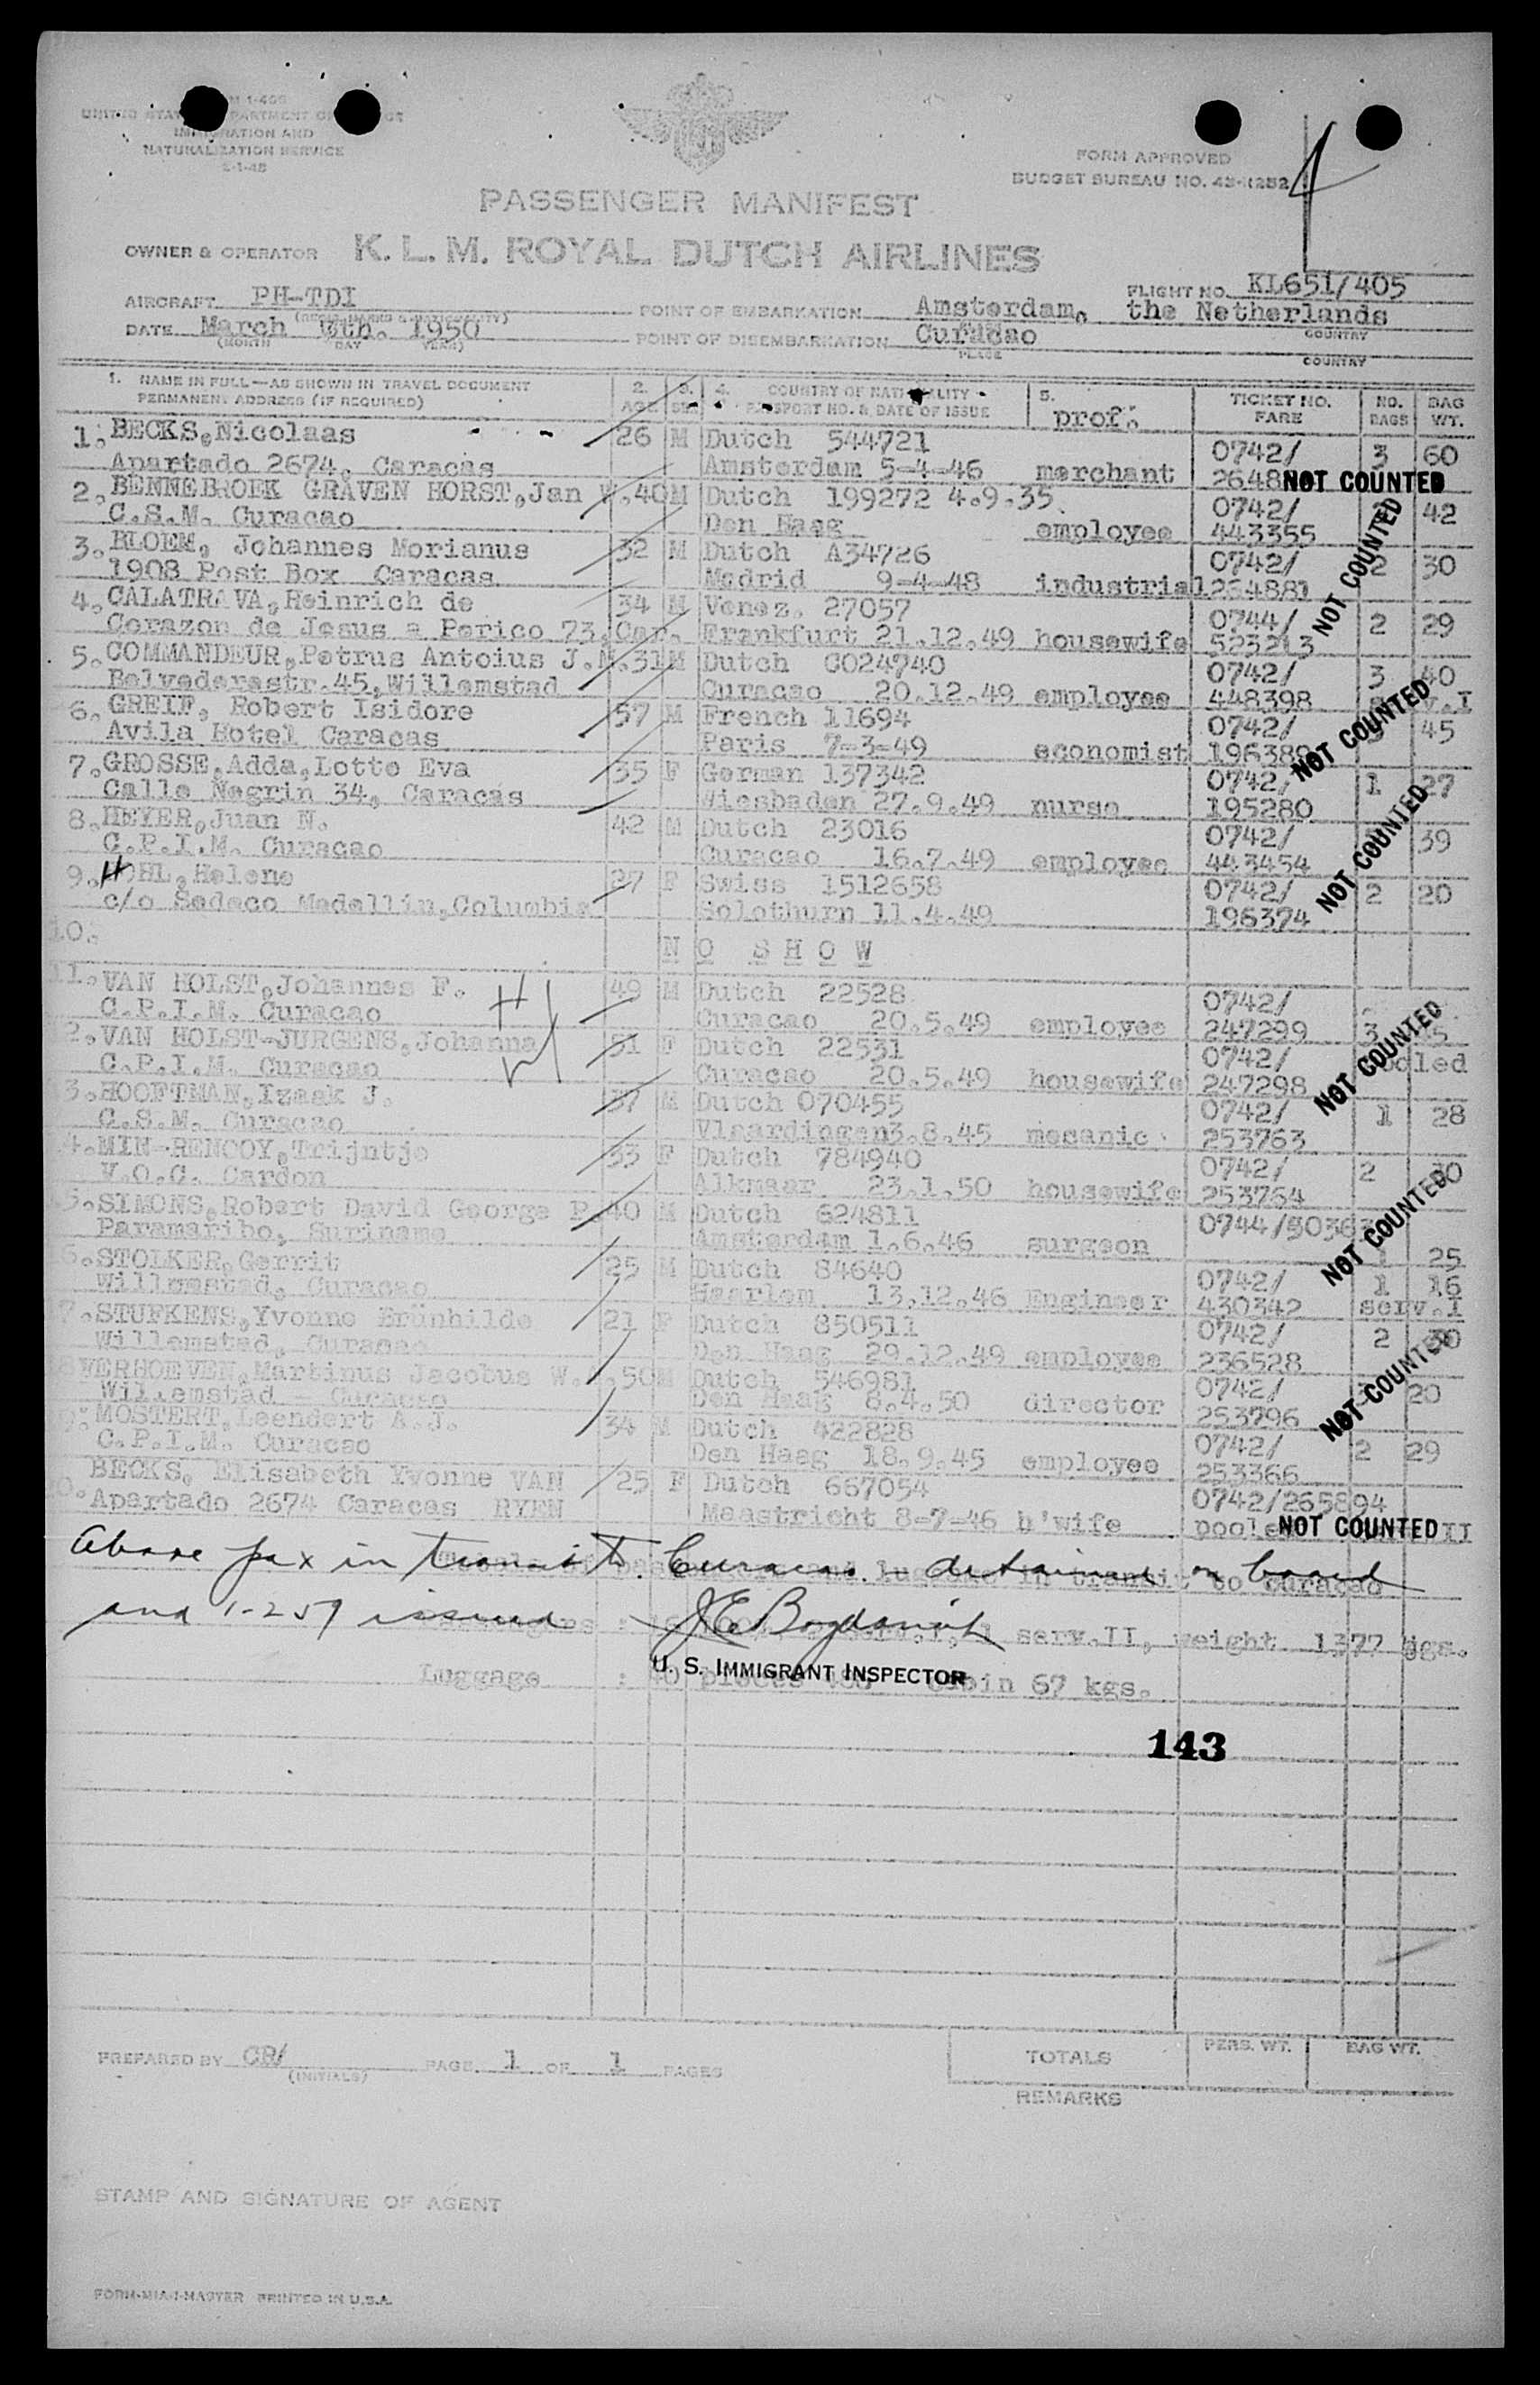 FORM APPROVED
BUDGET BUREAU NO. 43-R252
UNITED STATES DEPARTMENT OF
IMMIGRATION AND
NATURALIZATION SERVICE
PASSENGER MANIFEST
OWNER & OPERATOR K. L. M. ROYAL DUTCH AIRLINES
AIRCRAFT PH-TDI FLIGHT NO. KL651/405
(REGIS. MARKS & NATIONALITY) POINT OF EMBARKATION Amsterdam, the Netherlands
DATE March 1950 POINT OF DISEMBARKATION Curacao COUNTRY
(MONTH DAY YEAR) PLACE COUNTRY
1. NAME IN FULL—AS SHOWN IN TRAVEL DOCUMENT 2. 3. 4. COUNTRY OF NATIONALITY 5. TICKET NO. NO. BAG
PERMANENT ADDRESS (IF REQUIRED) AGE SEX PASSPORT NO. & DATE OF ISSUE prof. FARE BAGS WT.
1. BECKS, Nicolaas 26 M Dutch 544721 0742/ 3 60
Apartado 2674, Caracas Amsterdam 5-4-46 merchant NOT COUNTED
2. BENNEBROEK GRAVEN HORST, Jan W. 40 M Dutch 199272 4.9.35. 0742/ 42
C.S.M. Curacao Den Haag employee 443355
3. BLOEM, Johannes Morianus 32 M Dutch A34726 0742/ 2 30
1908 Post Box Caracas Madrid 9-4-48 industrial 264881 NOT COUNTED
4. CALATRAVA, Heinrich de 34 M Venez. 27057 0744/ 2 29
Corazon de Jesus a Perico 73, Car. Frankfurt 21.12.49 housewife 523213
5. COMMANDEUR, Petrus Antoius J.M. 31 M Dutch C024740 0742/ 3 40
Belvederestr.45, Willemstad Curacao 20.12.49 employee 448398
6. GREIF, Robert Isidore 57 M French 11694 0742/ 45
Avila Hotel Caracas Paris 7-3-49 economist NOT COUNTED
7. GROSSE, Adda, Lotte Eva 35 F German 137342 0742/ 1 27
Calle Negrin 34, Caracas Wiesbaden 27.9.49 nurse 195280
8. HEYER, Juan N. 42 M Dutch 23016 0742/ 39
C.P.I.M. Curacao Curacao 16.7.49 employee 443454 NOT COUNTED
9. HOHL, Helene 27 F Swiss 1512658 0742/ 2 20
c/o Sedeco Medellin, Columbia Solothurn 11.4.49 196374
10. N O S H O W
11. VAN HOLST, Johannes F. 49 M Dutch 22528 0742/
C.P.I.M. Curacao Curacao 20.5.49 employee 247299 3
2. VAN HOLST-JURGENS, Johanna 51 F Dutch 22531 0742/
C.P.I.M. Curacao Curacao 20.5.49 housewife 247298 NOT COUNTED
3. HOOFTMAN, Izaak J. 37 M Dutch 070455 0742/ 1 28
C.S.M. Curacao Vlaardingen 3.8.45 mecanic 253763
4. MIN-RENCOY, Trijntje 33 F Dutch 784940 0742/ 2
V.O.C. Cardon Alkmaar 23.1.50 housewife 253764
5. SIMONS, Robert David George P. 40 M Dutch 624811 0744/
Paramaribo, Suriname Amsterdam 1.6.46 surgeon NOT COUNTED 1 25
6. STOLKER, Gerrit 25 M Dutch 84640 0742/ 1 16
Willemstad, Curacao Haarlem 13.12.46 Engineer 430342 serv.I
7. STUFKENS, Yvonne Brünhilde 21 F Dutch 850511 0742/ 2 30
Willemstad, Curacao Den Haag 29.12.49 employee 236528
8 VERHOEVEN, Martinus Jacobus W. 50 M Dutch 546981 0742/ 20
Willemstad - Curacao Den Haag 8.4.50 director 253796 NOT COUNTED
9. MOSTERT, Leendert A.J. 34 M Dutch 422828 0742/ 2 29
C.P.I.M. Curacao Den Haag 18.9.45 employee 253366
BECKS, Elisabeth Yvonne VAN 25 F Dutch 667054 0742/265894
Apartado 2674 Caracas RYEN Maastricht 8-7-46 h'wife NOT COUNTED II
Above pax in transit to Curacao. - detained on board
luggage in transit to Curacao
and 1-259 issued
serv.II, weight 1377 kgs.
U. S. IMMIGRANT INSPECTOR
Luggage : 40 pieces cabin 67 kgs.
143
PREPARED BY CB/ PAGE 1 OF 1 PAGES
(INITIALS)
TOTALS PERS. WT. BAG WT.
REMARKS
STAMP AND SIGNATURE OF AGENT
FORM-MIA-1-MASTER PRINTED IN U.S.A.